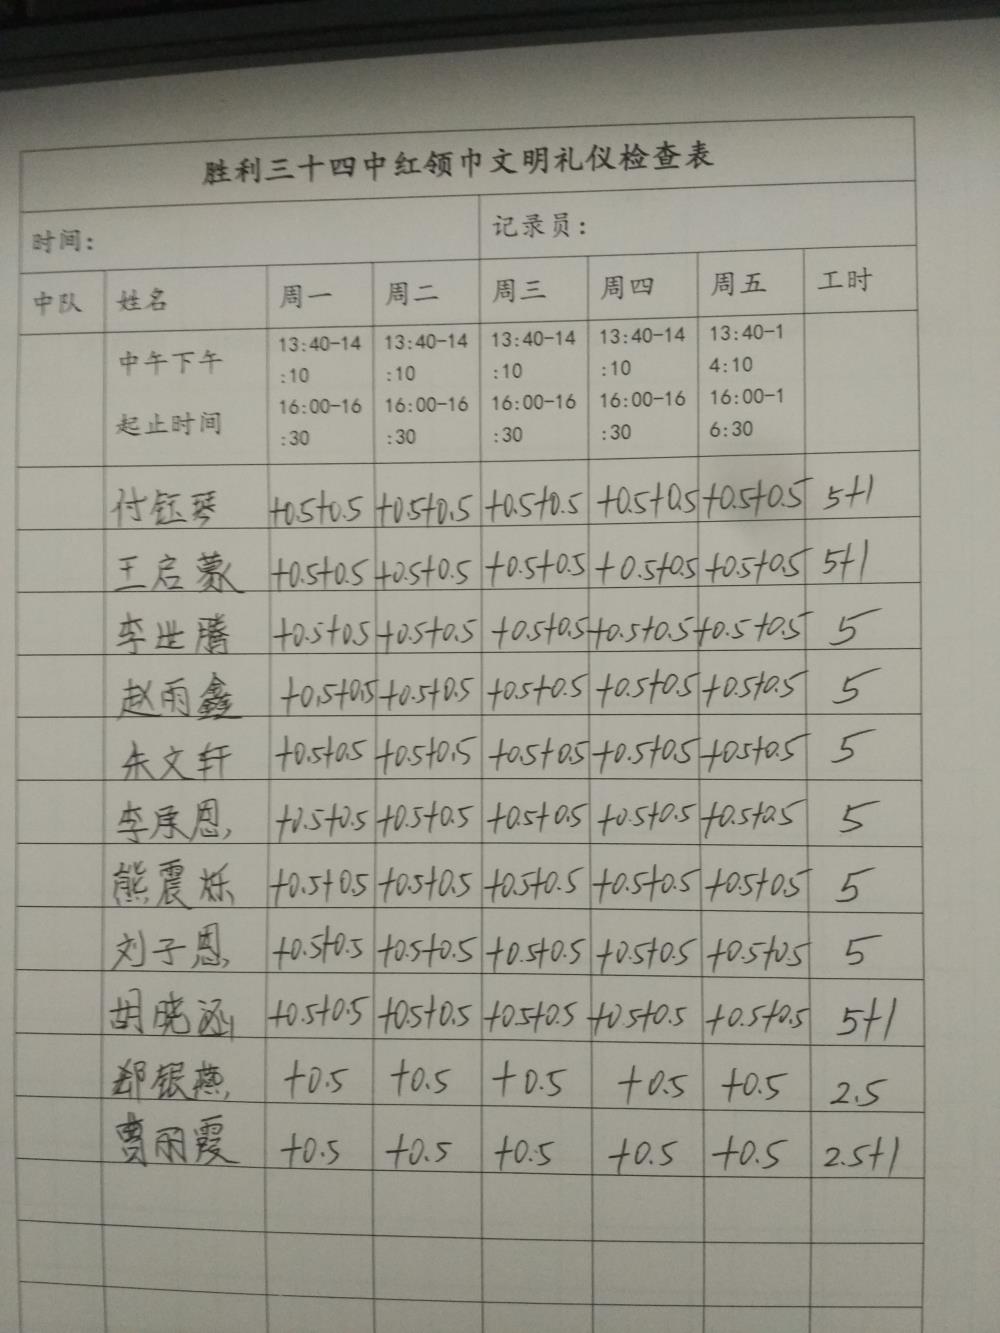 胜利三十四中红领巾文明礼仪检查表
时间: 记录员:
中队 姓名 周一 周二 周三 周四 周五 工时
中午下午 13:40-14 13:40-14 13:40-14 13:40-14 13:40-1
:10 :10 :10 :10 4:10
起止时间 16:00-16 16:00-16 16:00-16 16:00-16 16:00-1
:30 :30 :30 :30 6:30
付钰琴 +0.5+0.5 +0.5+0.5 +0.5+0.5 +0.5+0.5 +0.5+0.5 5+1
王启蒙 +0.5+0.5 +0.5+0.5 +0.5+0.5 +0.5+0.5 +0.5+0.5 5+1
李世腾 +0.5+0.5 +0.5+0.5 +0.5+0.5 +0.5+0.5 +0.5+0.5 5
赵雨鑫 +0.5+0.5 +0.5+0.5 +0.5+0.5 +0.5+0.5 +0.5+0.5 5
朱文轩 +0.5+0.5 +0.5+0.5 +0.5+0.5 +0.5+0.5 +0.5+0.5 5
李承恩 +0.5+0.5 +0.5+0.5 +0.5+0.5 +0.5+0.5 +0.5+0.5 5
熊震烁 +0.5+0.5 +0.5+0.5 +0.5+0.5 +0.5+0.5 +0.5+0.5 5
刘子恩 +0.5+0.5 +0.5+0.5 +0.5+0.5 +0.5+0.5 +0.5+0.5 5
胡晓涵 +0.5+0.5 +0.5+0.5 +0.5+0.5 +0.5+0.5 +0.5+0.5 5+1
郑银燕 +0.5 +0.5 +0.5 +0.5 +0.5 2.5
曹丽霞 +0.5 +0.5 +0.5 +0.5 +0.5 2.5+1